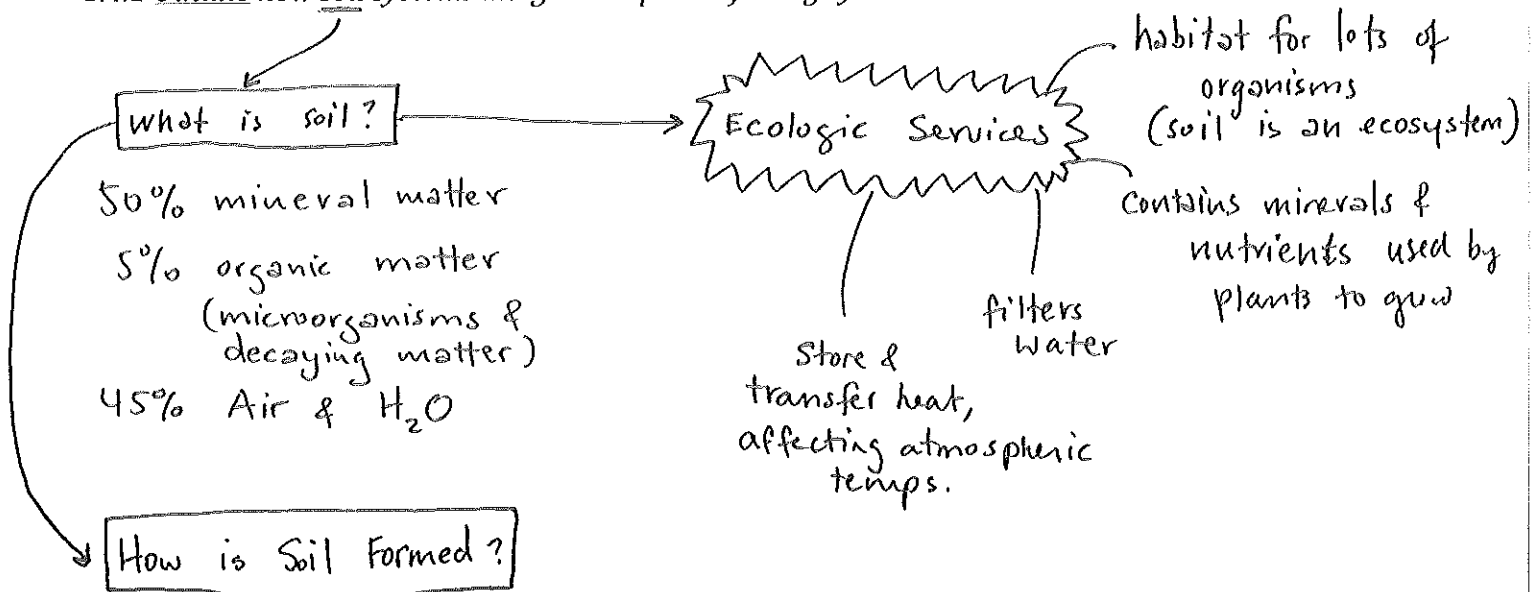 What is soil?
50% mineral matter
5% organic matter
(microorganisms &
decaying matter)
45% Air & H₂O
How is Soil Formed?
Ecologic Services
habitat for lots of
organisms
(soil is an ecosystem)
contains minerals &
nutrients used by
plants to grow
filters
water
Store &
transfer heat,
affecting atmospheric
temps.